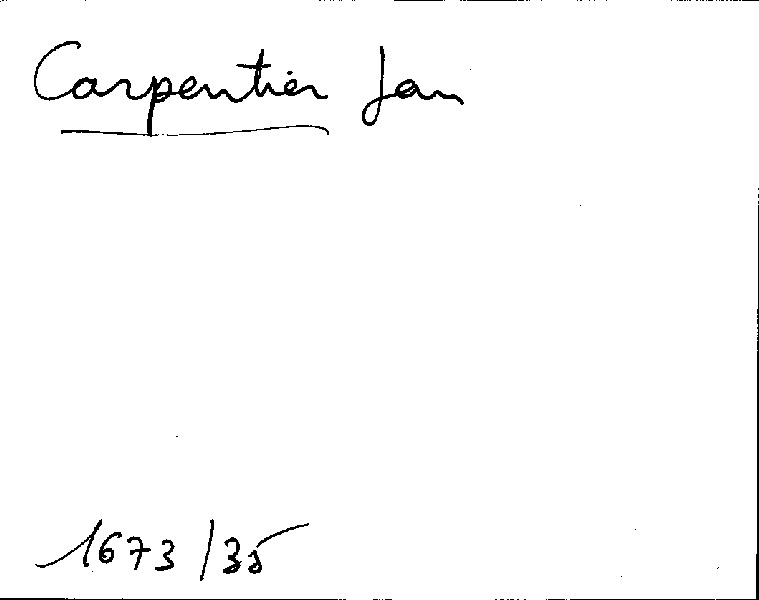 Carpentier Jan
1673/35